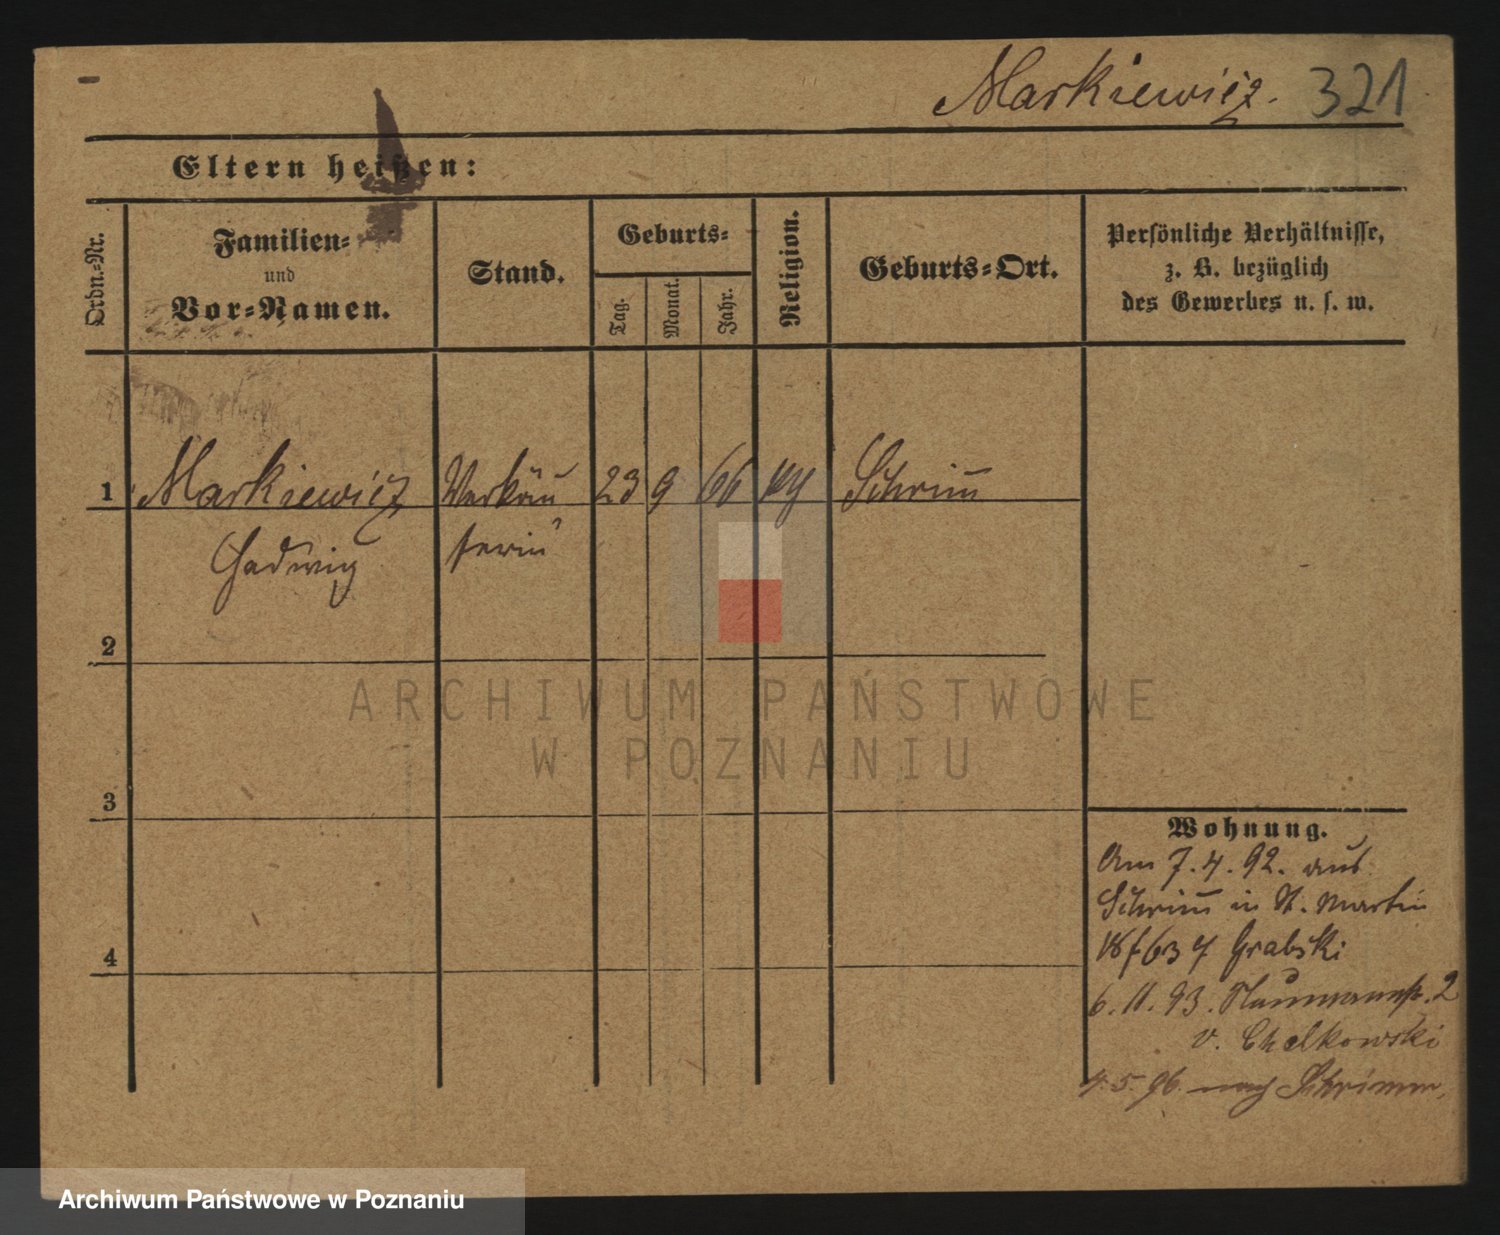 Markiewicz. 321
Eltern heißen:
Ordn.-Nr.
Familien-
und
Vor-Namen.
Stand.
Geburts-
Tag.
Monat.
Jahr.
Religion.
Geburts-Ort.
Persönliche Verhältnisse,
z. B. bezüglich
des Gewerbes u. s. w.
1 Markiewicz Verkäu 23 9 66 Schrim̄
Hedwig ferin
2
3
4
Wohnung.
Am 7.4.92. aus
Schrim̄ in St. Martin
Grabski
6.11.93. Naumannstr. 2
v. Chelkowski
4.5.96. nach Schrimm.
ARCHIWUM PAŃSTWOWE
W POZNANIU
Archiwum Państwowe w Poznaniu